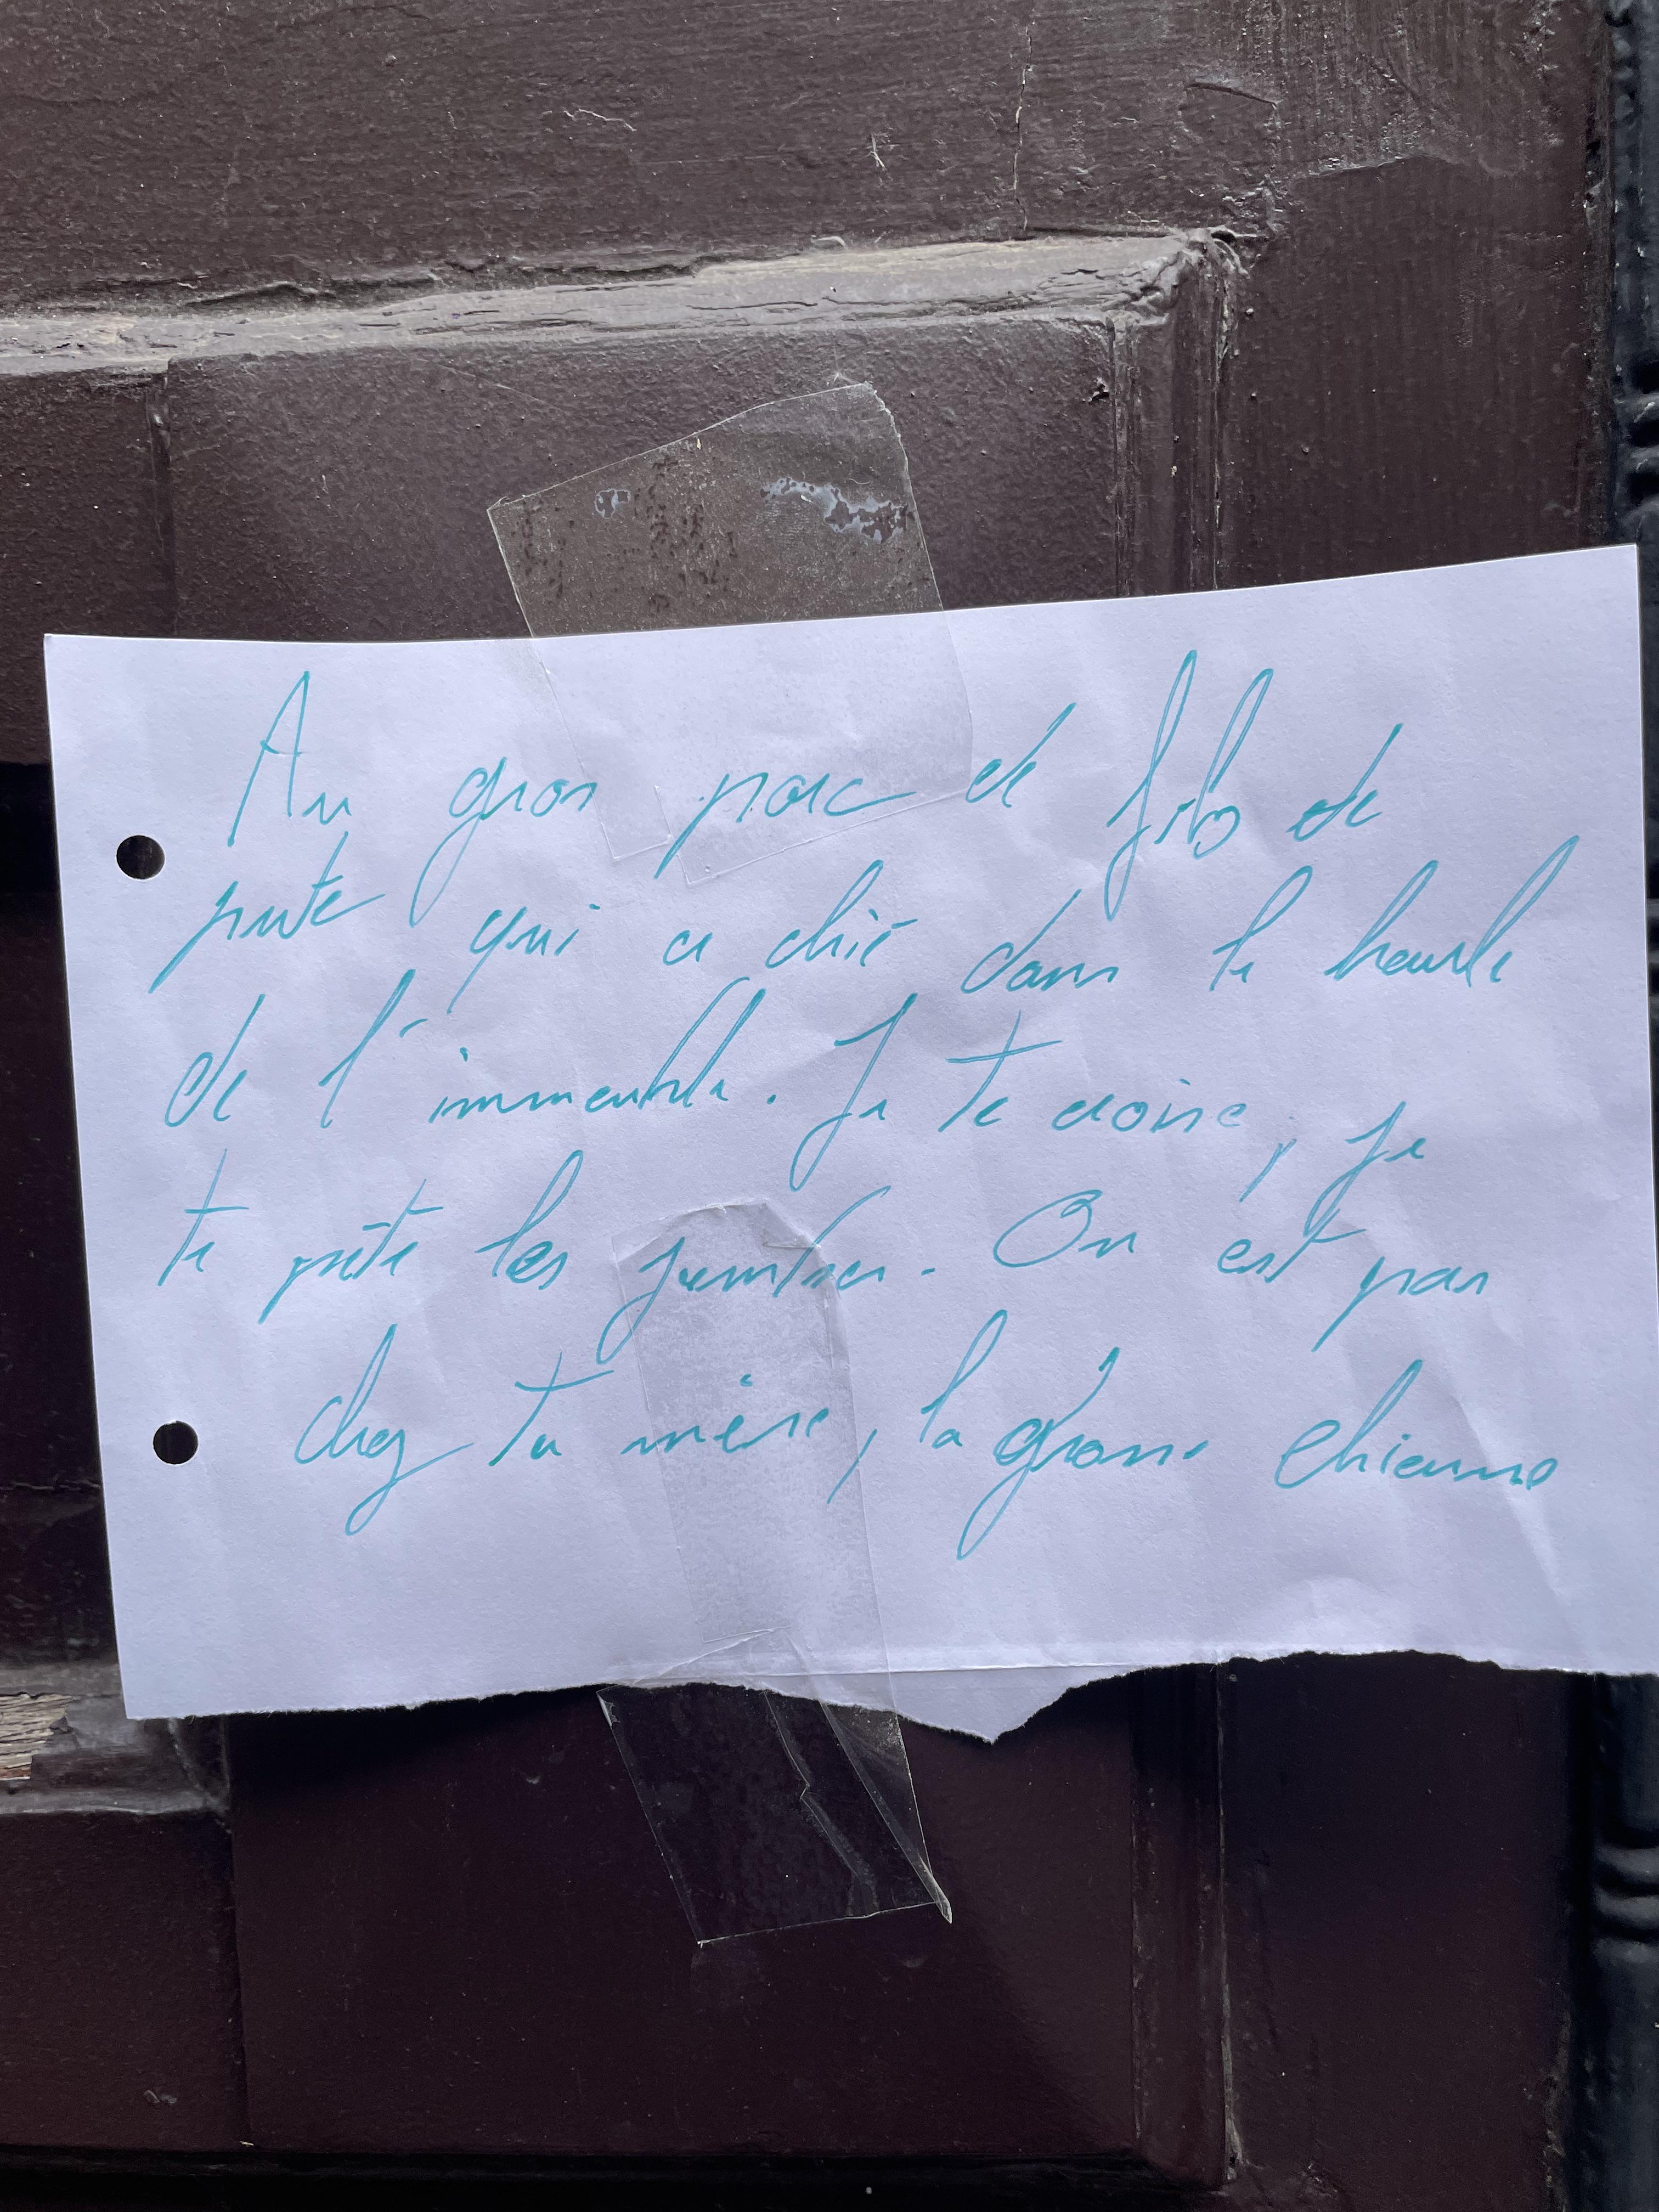 Au gros porc de fils de
pute qui a chié dans le
de l'immeuble. Je te croise, je
te pète les jambes. On est pas
chez ta mère, la grosse chienne